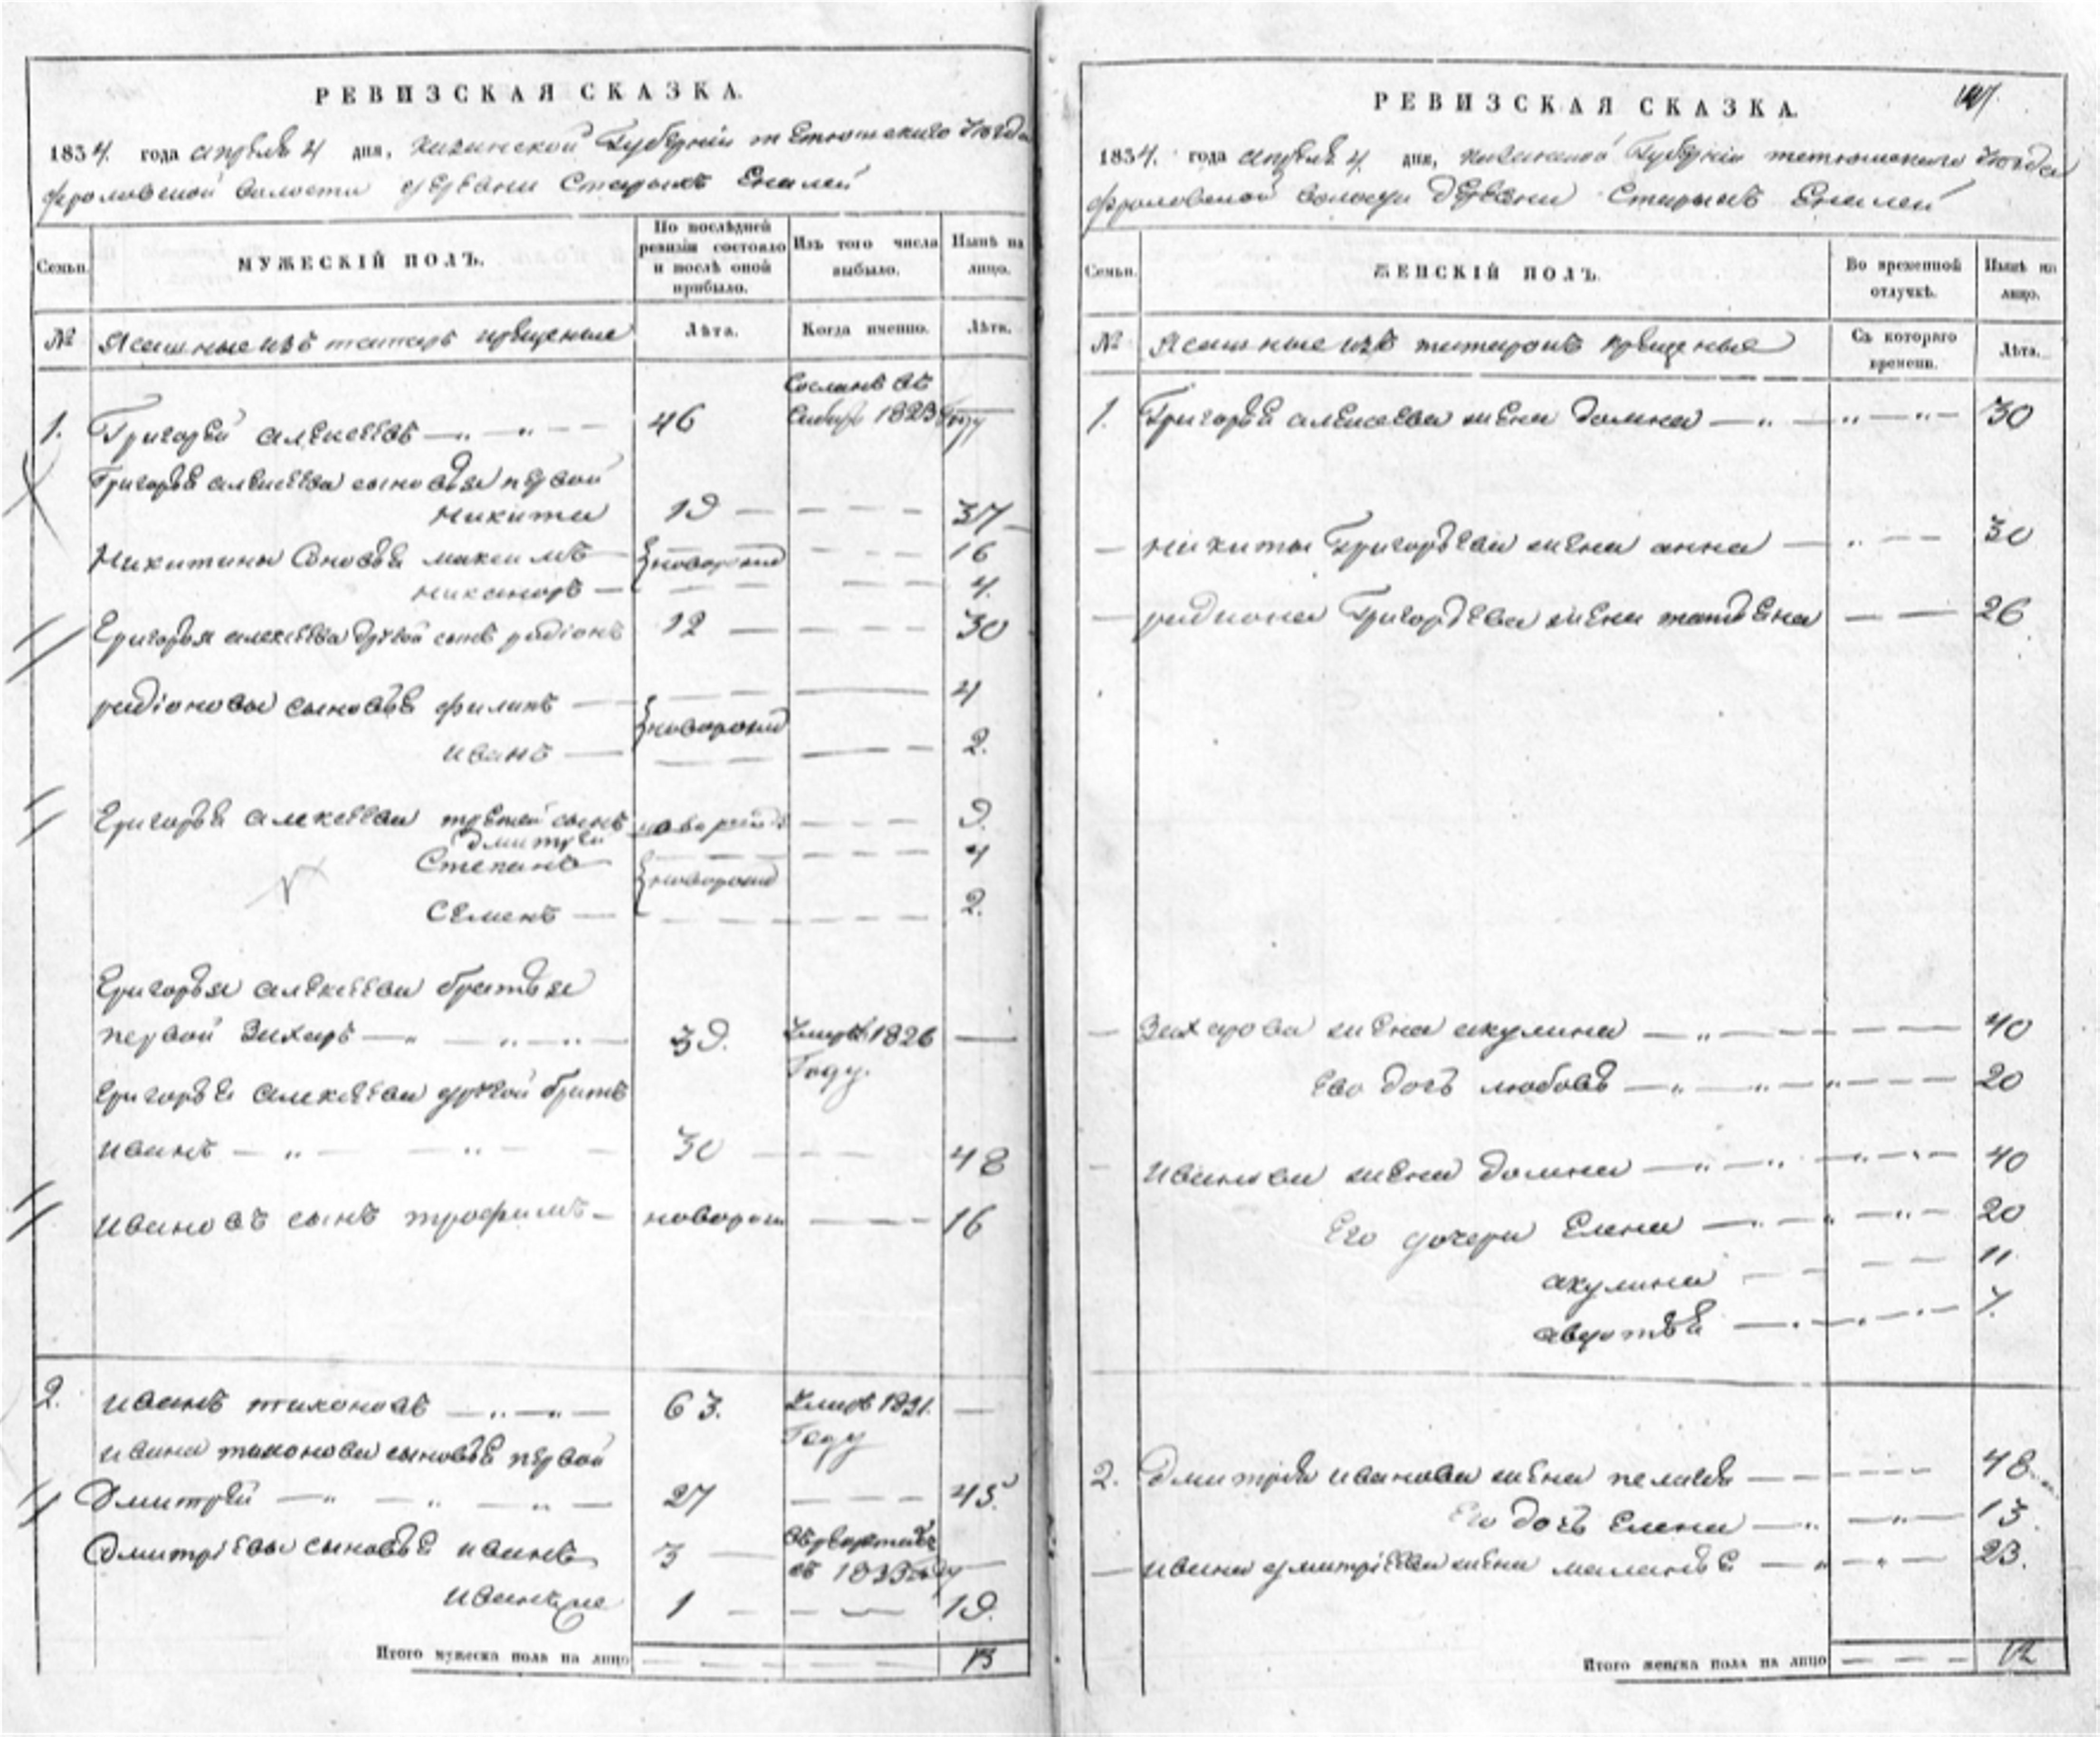 РЕВИЗСКАЯ СКАЗКА.
1834. года апреля 4 дня, казанской Губернiи тетюшскаго Уезда
фроловской волости деревни Старыхъ Еналей
Семьи.
МУЖЕСКIЙ ПОЛЪ.
По послѣдней ревизiи состояло и послѣ оной прибыло.
Изъ того числа выбыло.
Нынѣ на лицо.
№
Ясашные изъ татаръ крещеные
Лѣта.
Когда именно.
Лѣта.
1. Григорей алексеевъ — 46 Сосланъ въ
Сибирь 1823 году —
Григорья алексеева сыновья первой
Никита 19 — — — — 37
Никитины Сыновья максимъ новорожд — — — 16
никаноръ — — — — — 4.
Григорья алексеева другой сынъ родiонъ 12 — — — — 30
родiоновы сыновья филипъ — новорожд — — — 4
иванъ — — — — — 2.
Григорья алексеева третей сынъ новорожд — — — 9.
Дмитрей
Степанъ новорожд — — — 4
Семенъ — — — — — 2.
Григорья алексеева братья
первой Захаръ — „ — „ — 39. Умръ 1826 —
Году.
Григорья алексеева другой братъ
иванъ — „ — „ — 30 — — — 48
ивановъ сынъ трофимъ — новорож — — — 16
2. иванъ тихоновъ — „ — „ — 63. Умръ 1831. —
Году
ивана тихонова сыновья первой
Дмитрей — „ — „ — „ — 27 — — — 45.
Дмитрiевы сыновья иванъ 3 —
въ 1833 году —
иванъ же 1 — — — 19.
Итого мужеска пола на лицо — — — — 13
141.
РЕВИЗСКАЯ СКАЗКА.
1834. года апреля 4. дня, казанской Губернiи тетюшскаго Уезда
фроловской волости Деревни Старыхъ Еналей
Семьи.
ЖЕНСКIЙ ПОЛЪ.
Во временной отлучкѣ.
Нынѣ на лицо.
№
Ясашные изъ татаровъ крещеные
Съ котораго времени.
Лѣта.
1. Григорья алексеева жена домна — „ — „ — „ — 30
— никиты Григорьева жена анна — „ — — 30
— радиона Григорьева жена татьяна — — 26
— Захарова жена акулина — „ — — — — 40
Его дочь любовь — „ — „ — „ — — — 20
— Иванова жена домна — „ — „ — „ — „ — 40
Его дочери Елена — „ — „ — „ — 20
акулина — — — — 11
авдотья — „ — „ — „ — 7.
2. Дмитрея иванова жена пелагея — — — — 48.
Его дочь Елена — „ — „ — 13.
— ивана дмитрiева жена маланья — „ — „ — 23.
Итого женска пола на лицо — — — 12